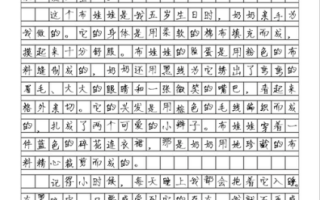 这个布娃娃是我五岁生日时，奶奶亲手为
我做的。它的身体是用柔软的棉布填充而成，
摸起来十分舒服。布娃娃的脸蛋是用粉色的布
料缝制成的。奶奶还用黑线为它绣出了弯弯的
眉毛、大大的眼睛和一张微笑的嘴巴，看起来
格外亲切。它的头发是用棕色的毛线编织而成
的，扎成了两个可爱的小辫子。布娃娃穿着一
件蓝色的碎花连衣裙，那是奶奶用她珍藏的布
料精心裁剪而成的。
记得小时候，每天晚上我都会抱着它入睡